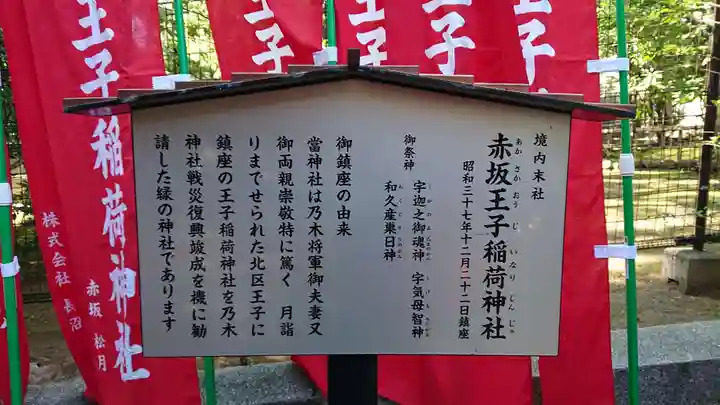 境内末社
赤坂王子稲荷神社
あかさかおうじいなりじんじゃ
昭和三十七年十二月二十二日鎮座
御祭神
宇迦之御魂神 宇気母智神
和久産巣日神
御鎮座の由来
當神社は乃木将軍御夫妻又
御両親崇敬特に篤く 月詣
りまでせられた北区王子に
鎮座の王子稲荷神社を乃木
神社戦災復興竣成を機に勧
請した縁の神社であります
王子稲荷神社
赤坂 松月
株式会社 長沼
王子
王子
王子
王子